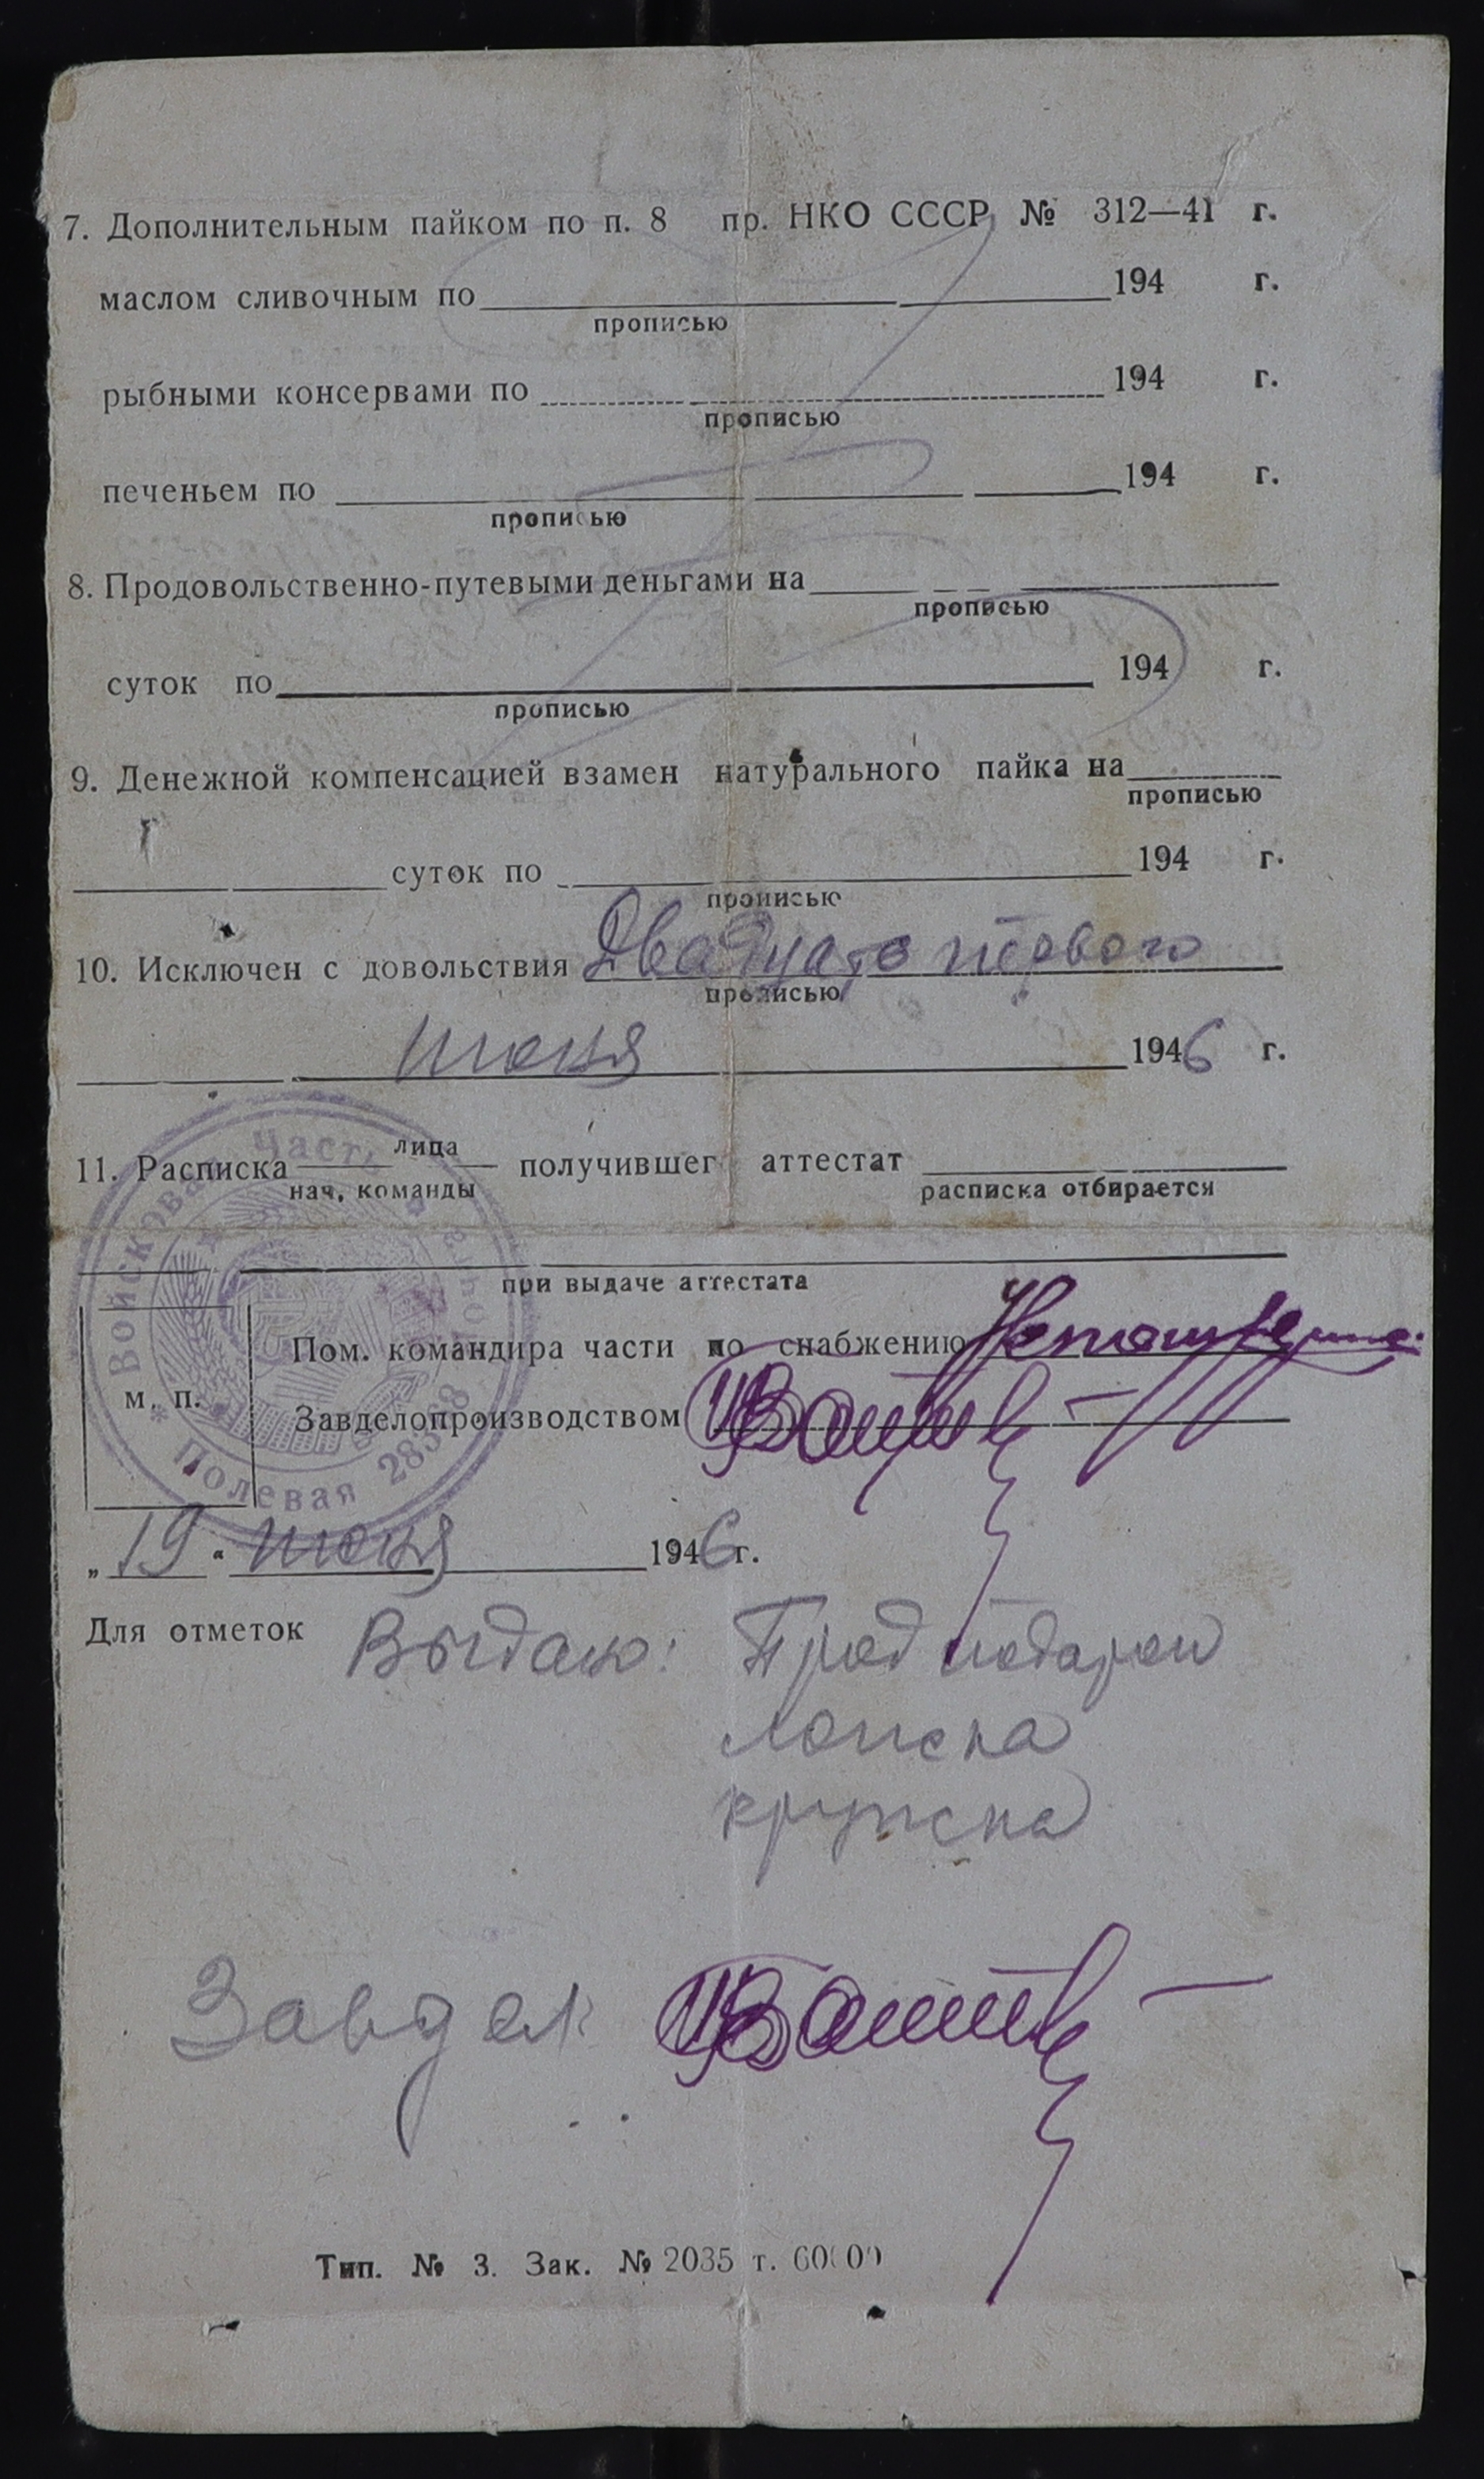 7. Дополнительным пайком по п. 8 пр. НКО СССР № 312—41 г.
маслом сливочным по 194 г.
прописью
рыбными консервами по 194 г.
прописью
печеньем по 194 г.
прописью
8. Продовольственно-путевыми деньгами на
прописью
суток по 194 г.
прописью
9. Денежной компенсацией взамен натурального пайка на
прописью
суток по 194 г.
прописью
10. Исключен с довольствия Двадцать первого
прописью
июня 1946 г.
лица
11. Расписка получившег аттестат
нач. команды расписка отбирается
при выдаче аттестата
Пом. командира части по снабжению
м. п.
Завделопроизводством
Войсковая Часть Полевая почта
„19“ июня 1946 г.
Для отметок Выдано: Прод подарок
ложка
кружка
Завдел
Тип. № 3. Зак. № 2035 т. 60000